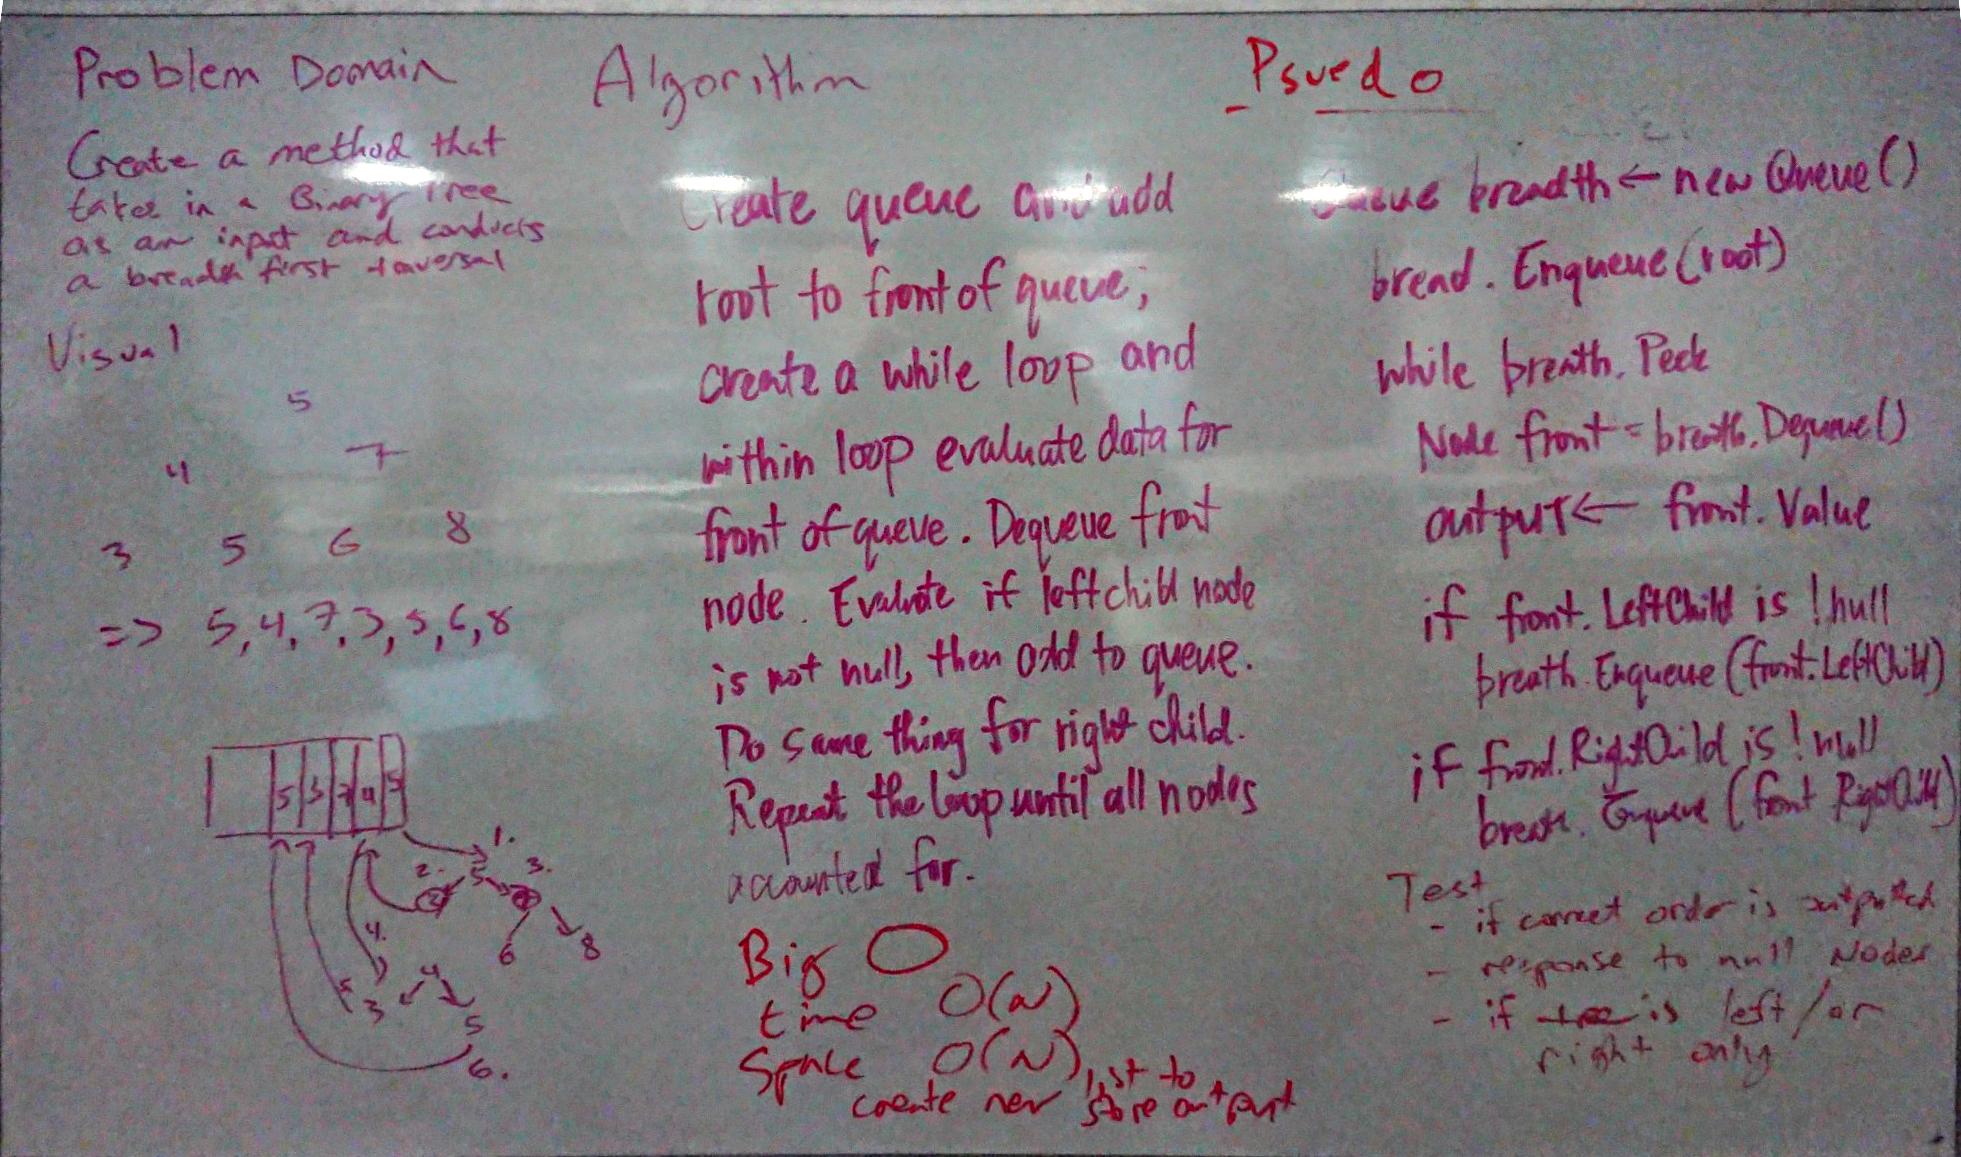 Problem Domain
Create a method that
takes in a Binary Tree
as an input and conducts
a breadth first traversal
Visual
5
4 7
3 5 6 8
=> 5, 4, 7, 3, 5, 6, 8
5 3 7 4 5
1.
2. 5 3.
4. 6 8
3 4
5
6.
Algorithm
Create queue and add
root to front of queue;
create a while loop and
within loop evaluate data for
front of queue. Dequeue front
node. Evaluate if left child node
is not null, then add to queue.
Do same thing for right child.
Repeat the loop until all nodes
accounted for.
Big O
time O(N)
Space O(N)
create new list to
store output
Psuedo
Queue breadth ← new Queue()
bread. Enqueue(root)
while breath. Peek
Node front = breath. Dequeue()
output ← front. Value
if front. LeftChild is !null
breath. Enqueue (front. LeftChild)
if front. RightChild is !null
breath. Enqueue (front RightChild)
Test
- if correct order is outputted
- response to null Nodes
- if tree is left / or
right only